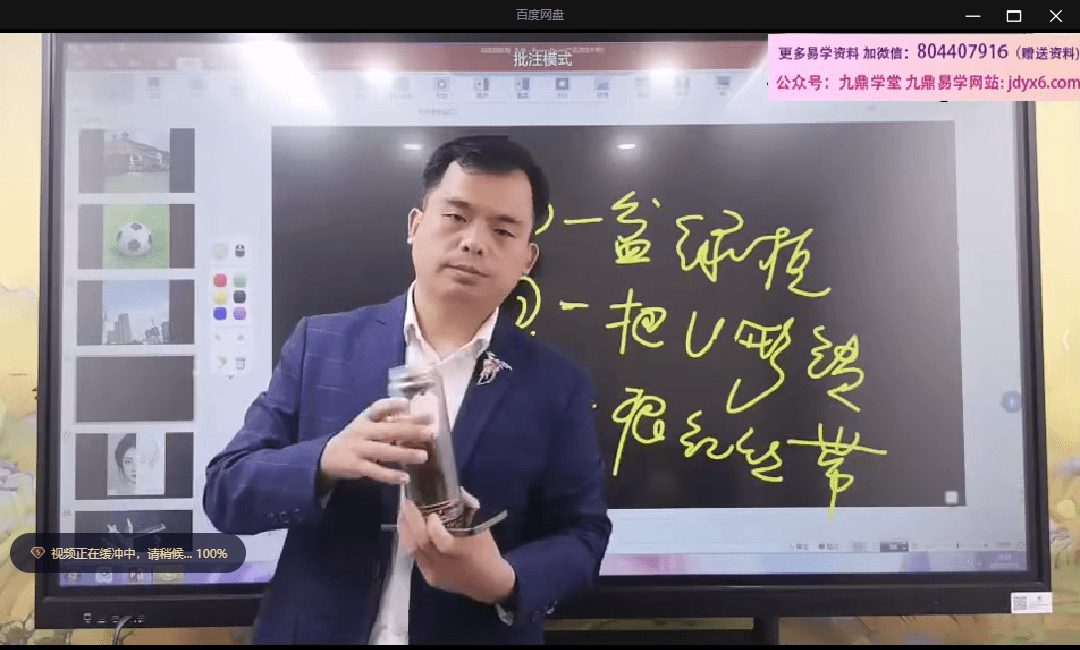 百度网盘
批注模式
更多易学资料 加微信：804407916（赠送资料）
公众号：九鼎学堂 九鼎易学网站：jdyx6.com
一盆绿植
② 一把U形锁
根红丝带
视频正在缓冲中，请稍候... 100%